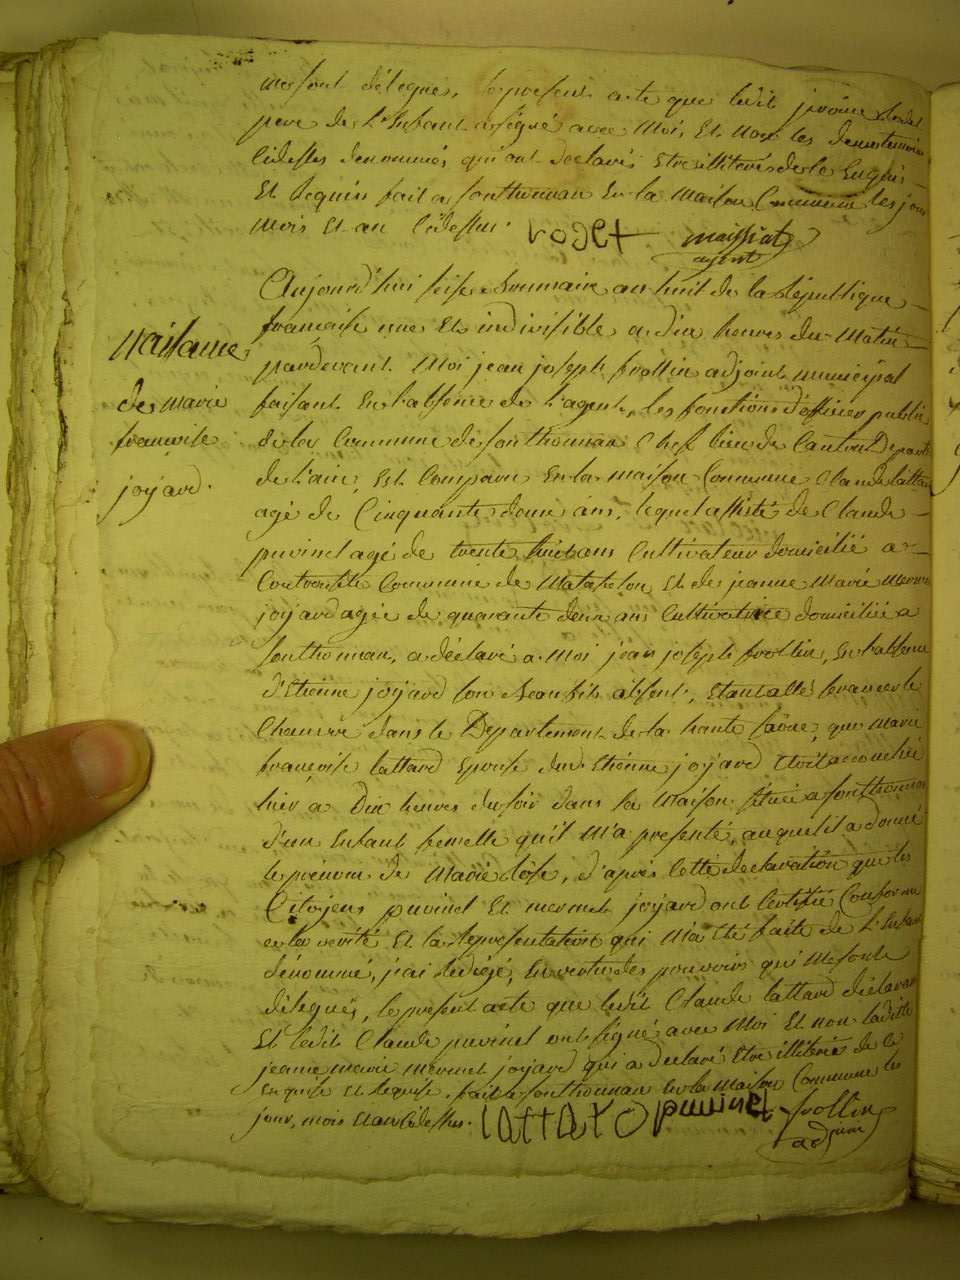 me sont délégués, le présent acte que ledit jerôme
pere de l'Enfant a signé avec Moi, Et non les deux temoins
cidessus denommés, qui ont declarés Etre illiterés de ce Enquis
Et Requis fait a sonthonnax En la Maison Commune les jour
Mois Et an Cidessus. roget Maissiat
agent
Aujourd'hui seise Brumaire an huit de la République
francaise une Et indivisible a dix heures du Matin
pardevant Moi jean joseph frollin adjoint municipal
faisant En l'absence de l'agent, les fonctions d'officier public
de la Commune de sonthonnax Chef lieu de Canton Depart.
de l'ain, Est Comparu En la maison Commune Claude lattard
agé de Cinquante deux ans, lequel assisté de Claude
puvinel agé de trente huit ans Cultivateur domicilié a
Commune de Matafelon Et de jeanne Marie Mermet
joyard agée de quarante deux ans Cultivatrice domiciliée a
sonthonnax, a déclaré a Moi jean joseph frollin, En l'absence
d'Etienne joyard son Beau fils absent, Etant allé
Chanvre dans le Département de la haute saône, que Marie
françoise lattard Epouse dud. Etienne joyard Etoit accouchée
hier a Dix heures du soir dans la Maison située a sonthonnax
d'un Enfant femelle qu'il M'a présenté, auquel il a donné
le prénom de Marie Rose, d'après cette declaration que les
Citoyens puvinel Et mermet joyard ont Certifié Conforme
a la verité Et la Représentation qui M'a été faite de l'Enfant
dénommé, j'ai Rédigé, En vertu des pouvoirs qui Me sont
délégués, le présent acte que ledit Claude lattard déclarant
Et ledit Claude puvinel ont signé avec Moi Et non ladite
jeanne marie mermet joyard qui a Declaré Etre illiterée de ce
Enquise Et Requise. fait a sonthonnax En la Maison Commune les
jour, mois Et an Cidessus. lattard puvinel frollin
adjoint
Naissance
de marie
francoise
joyard.